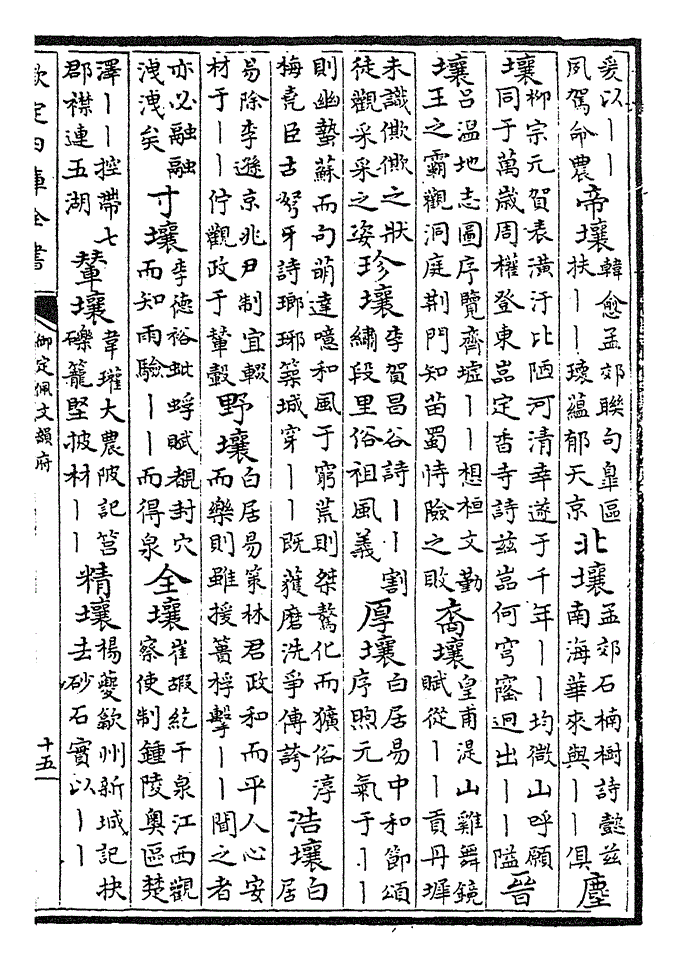 爰以丨丨夙駕命農帝壤韓愈孟郊聯句皐區扶丨丨瓌蘊郁天京北壤孟郊石楠樹詩懿兹南海華來與丨丨俱塵
壤柳宗元賀表潢汙比陋河清幸遂于千年丨丨均微山呼願同于萬歲周權登東嵓定香寺詩兹嵓何穹窿迥出丨丨隘晉
壤呂温地志圖序覽齊墟丨丨想桓文勤王之霸觀洞庭荆門知苗蜀恃險之敗裔壤皇甫湜山雞舞鏡賦從丨丨貢丹墀
未識僛僛之狀徒觀采采之姿珍壤李賀昌谷詩丨丨割繡段里俗祖風義厚壤白居易中和節頌序煦元氣于丨丨
則幽蟄蘇而句萌達噫和風于窮荒則桀驁化而獷俗淳梅堯臣古弩牙詩瑯琊築城穿丨丨既獲磨洗爭傳誇浩壤白居
易除李遜京兆尹制宜輟材于丨丨佇觀政于輦轂野壤白居易策林君政和而平人心安而樂則雖援蕢桴擊丨丨聞之者
亦必融融洩洩矣寸壤李德裕蚍蜉賦覩封穴而知雨驗丨丨而得泉全壤崔嘏紇干泉江西觀察使制鍾陵奥區楚
澤丨丨控帶七郡襟連五湖輦壤韋瓘大農陂記筥礫籠堅披材丨丨精壤楊夔歙州新城記抉去砂石實以丨丨
欽定四庫全書
御定佩文韻府
十五